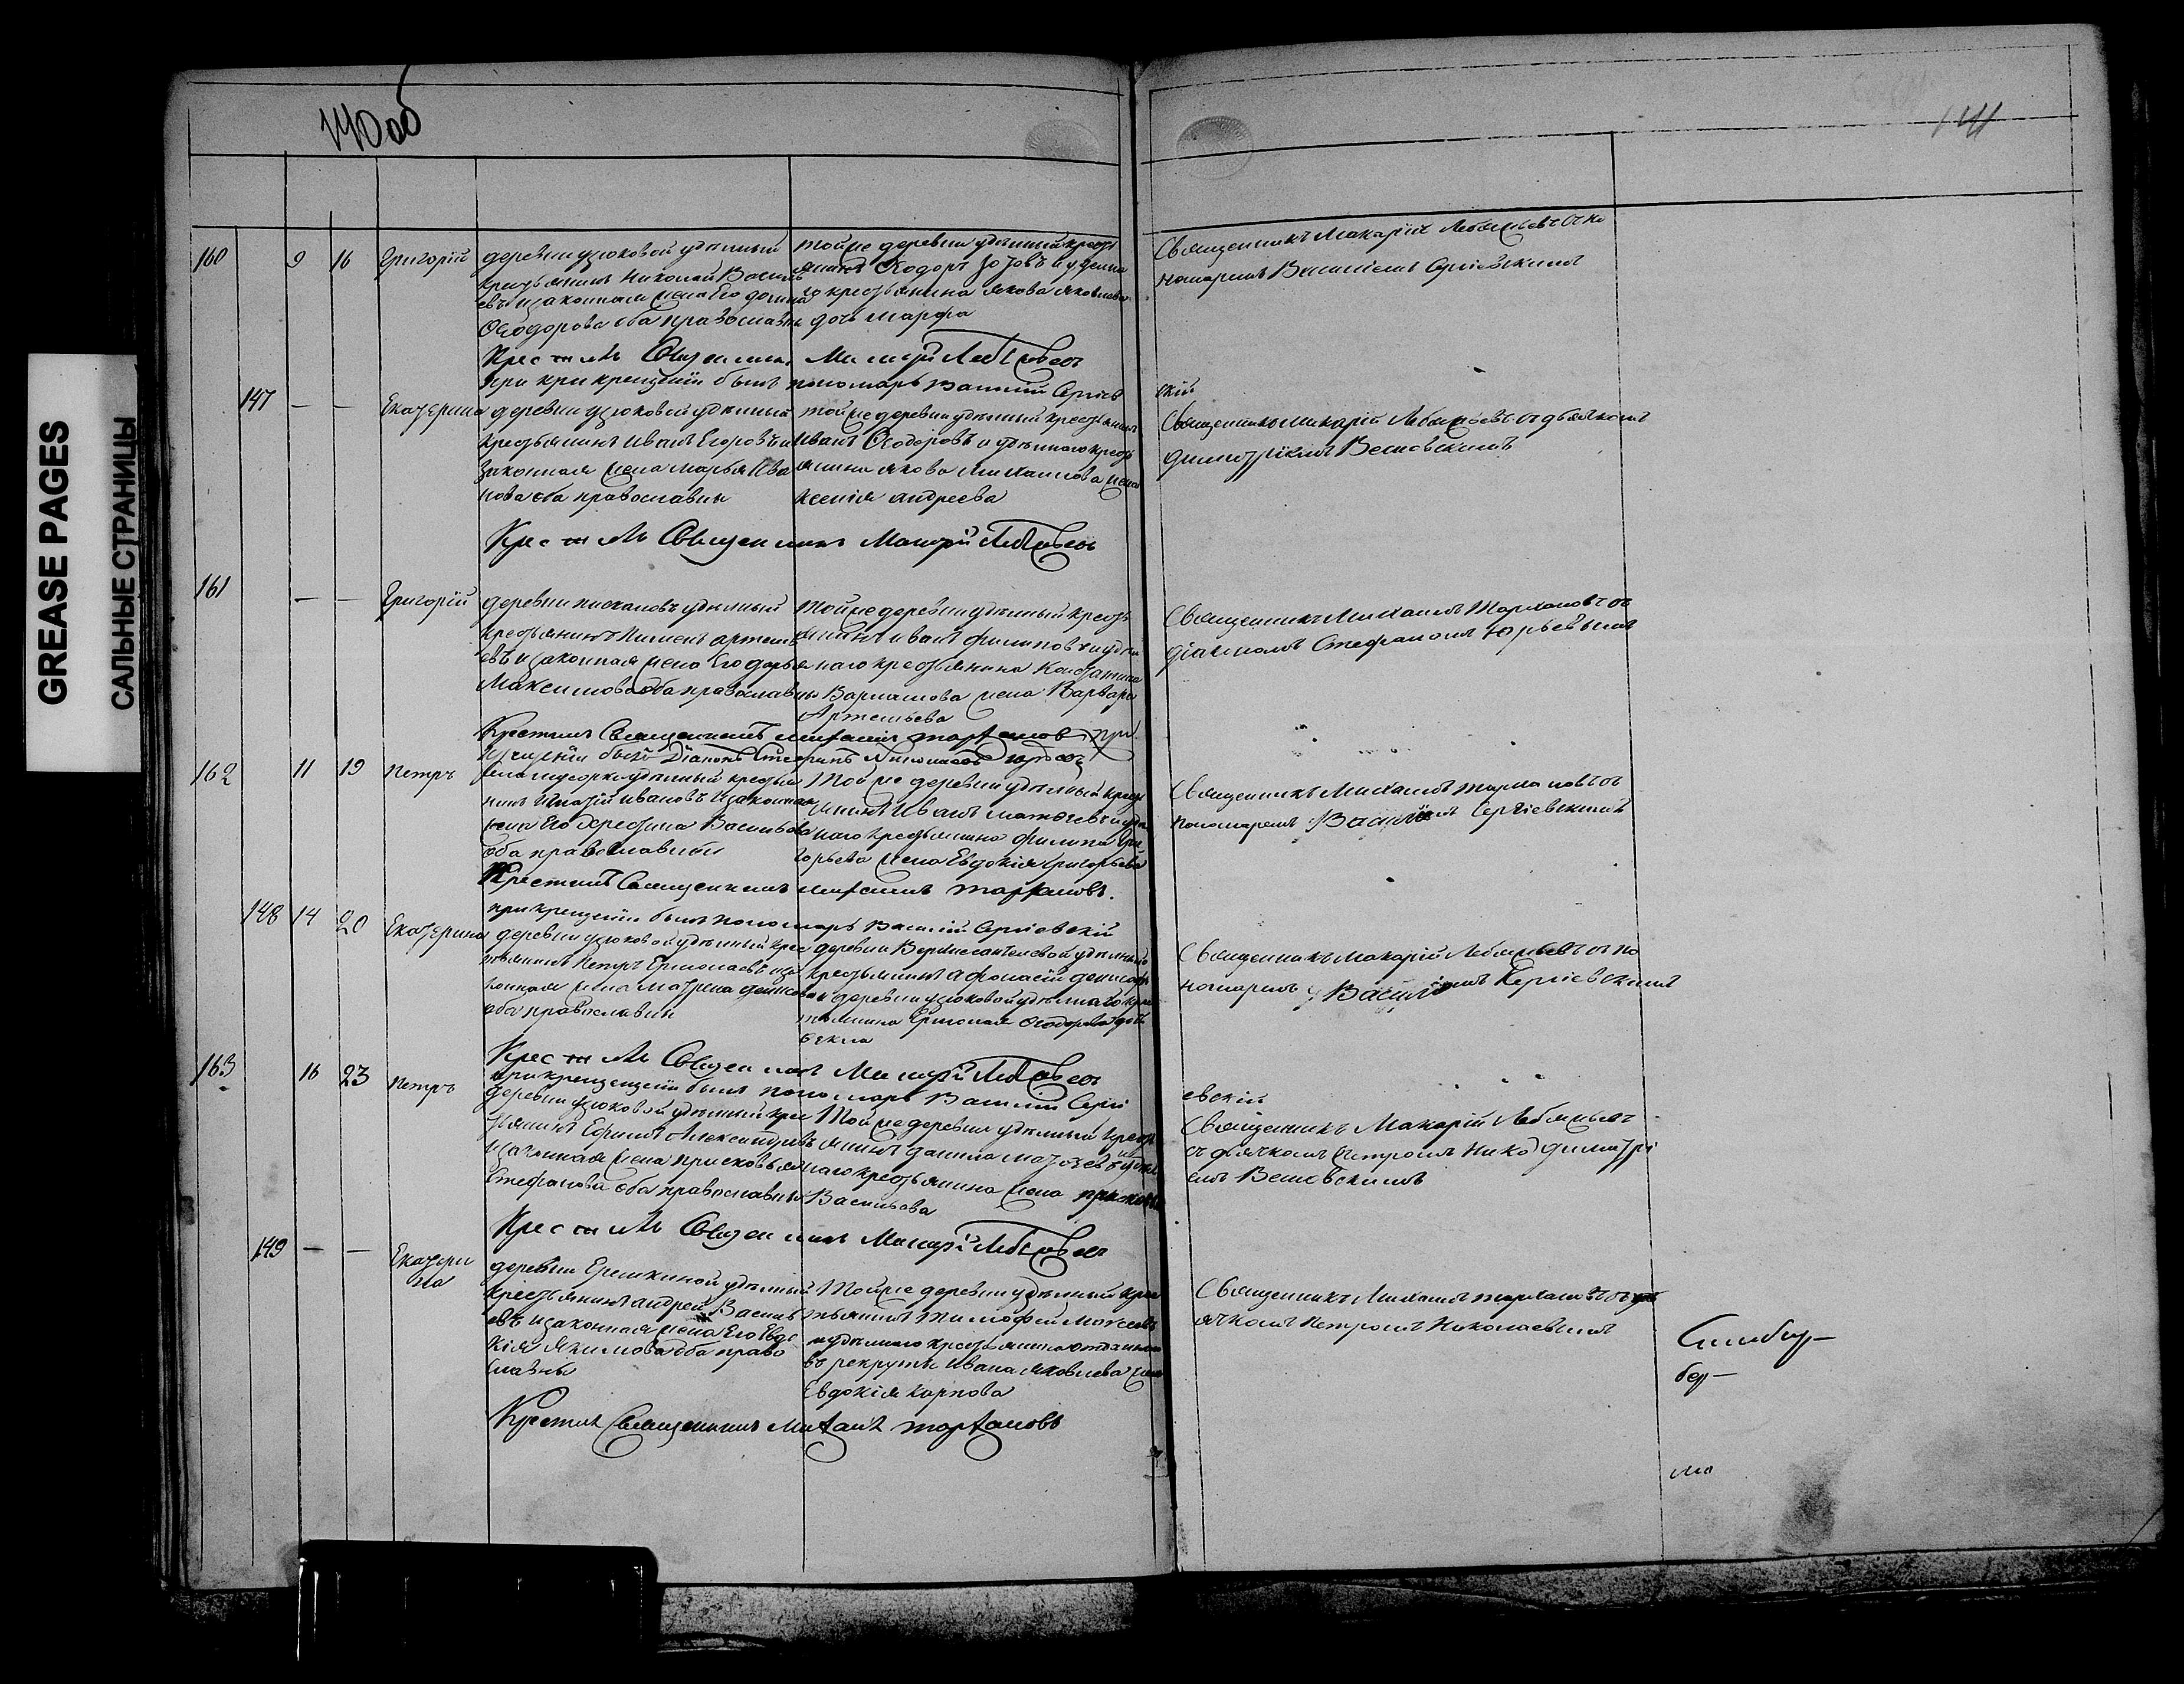 GREASE PAGES
САЛЬНЫЕ СТРАНИЦЫ
140 об
141
160 9 16 Григорій
деревни узюковой удѣльный
крестьянинъ Николай Василь
евъ и законная жена Его
Ѳеодорова оба православны
тойже деревни удѣльный кресть
янинъ Ѳеодоръ Зотовъ и удѣльна
го крестьянина Якова Яковлева
дочь Марфа
Священникъ Макарій Лебяжьевъ съ по
номаремъ Василіемъ Сергіевскимъ
Крестилъ Священникъ Макарій Лебяжьевъ
при крещеніи былъ пономарь Василій Сергіев
скій
147 — — Екатерина
деревни узюковой удѣльный
крестьянинъ Иванъ Егоровъ и
законная жена Марья Ива
нова оба православны
тойже деревни удѣльный крестьянинъ
Иванъ Ѳеодоровъ и удѣльнаго кресть
янина Якова Михаилова жена
Ксенія Андреева
Священникъ Макарій Лебяжьевъ съ дьячкомъ
Димитріемъ Весновскимъ
Крестилъ Священникъ Макарій Лебяжьевъ
161 — — Григорій
деревни удѣльный
крестьянинъ Пименъ Артемь
евъ и законная жена Его Дарья
Максимова оба православны
тойже деревни удѣльный кресть
янинъ Иванъ Филиповъ и удѣль
наго крестьянина Констатина
Варламова жена Варвара
Артемьева
Священникъ Михаилъ Тархановъ съ
діакономъ Стефаномъ Юрьевымъ
Крестилъ Священникъ Михаилъ Тархановъ при
крещеніи былъ Діаконъ Стефанъ
162 11 19 Петръ
села удѣльный крестья
нинъ Игнатій Ивановъ и законная
жена Его Христина Васильева
оба православны
Тойже деревни удѣльный кресть
янинъ Иванъ Матвѣевъ и удѣль
наго крестьянина Филипа Гри
горьева жена Евдокія Григорьева
Священникъ Михаилъ Тархановъ съ
пономаремъ Василіемъ Сергіевскимъ
Крестилъ Священникъ Михаилъ Тархановъ.
при крещеніи былъ пономарь Василій Сергіевскій
148 14 20 Екатерина
деревни узюковой удѣльный крес
тьянинъ Петръ Ермолаевъ и за
конная жена Матрена
оба православны
деревни удѣльный
крестьянинъ Афонасій Денисовъ
и деревни узюковой удѣльнаго крес
тьянина Ермолая Ѳеодорова дочь
Ѳекла
Священникъ Макарій Лебяжьевъ съ по
номаремъ Василіемъ Сергіевскимъ
Крестилъ Священникъ Макарій Лебяжьевъ
при крещеніи былъ пономарь Василій Сергі
евскій
163 16 23 Петръ
деревни узюковой удѣльный крес
тьянинъ Ефимъ Александровъ
и законная жена Прасковья
Стефанова оба православны
Тойже деревни удѣльный кресть
янинъ Данила Матвѣевъ и удѣль
наго крестьянина жена
Васильева
Священникъ Макарій Лебяжьевъ
съ дьячкомъ Димитрі
емъ Весновскимъ
Крестилъ Священникъ Макарій Лебяжьевъ
149 — — Екатери
на
деревни Еремкиной удѣльный
крестьянинъ Андрей Василь
евъ и законная жена Его Евдо
кія Якимова оба право
славны
Тойже деревни удѣльный крес
тьянинъ Тимофей Моисеевъ
и удѣльнаго крестьянина отданнаго
въ рекруты Ивана Яковлева жена
Евдокія Карпова
Священникъ Михаилъ Тархановъ съ дь
ячкомъ Петромъ Николаевымъ
Крестилъ Священникъ Михаилъ Тархановъ
Симбир-